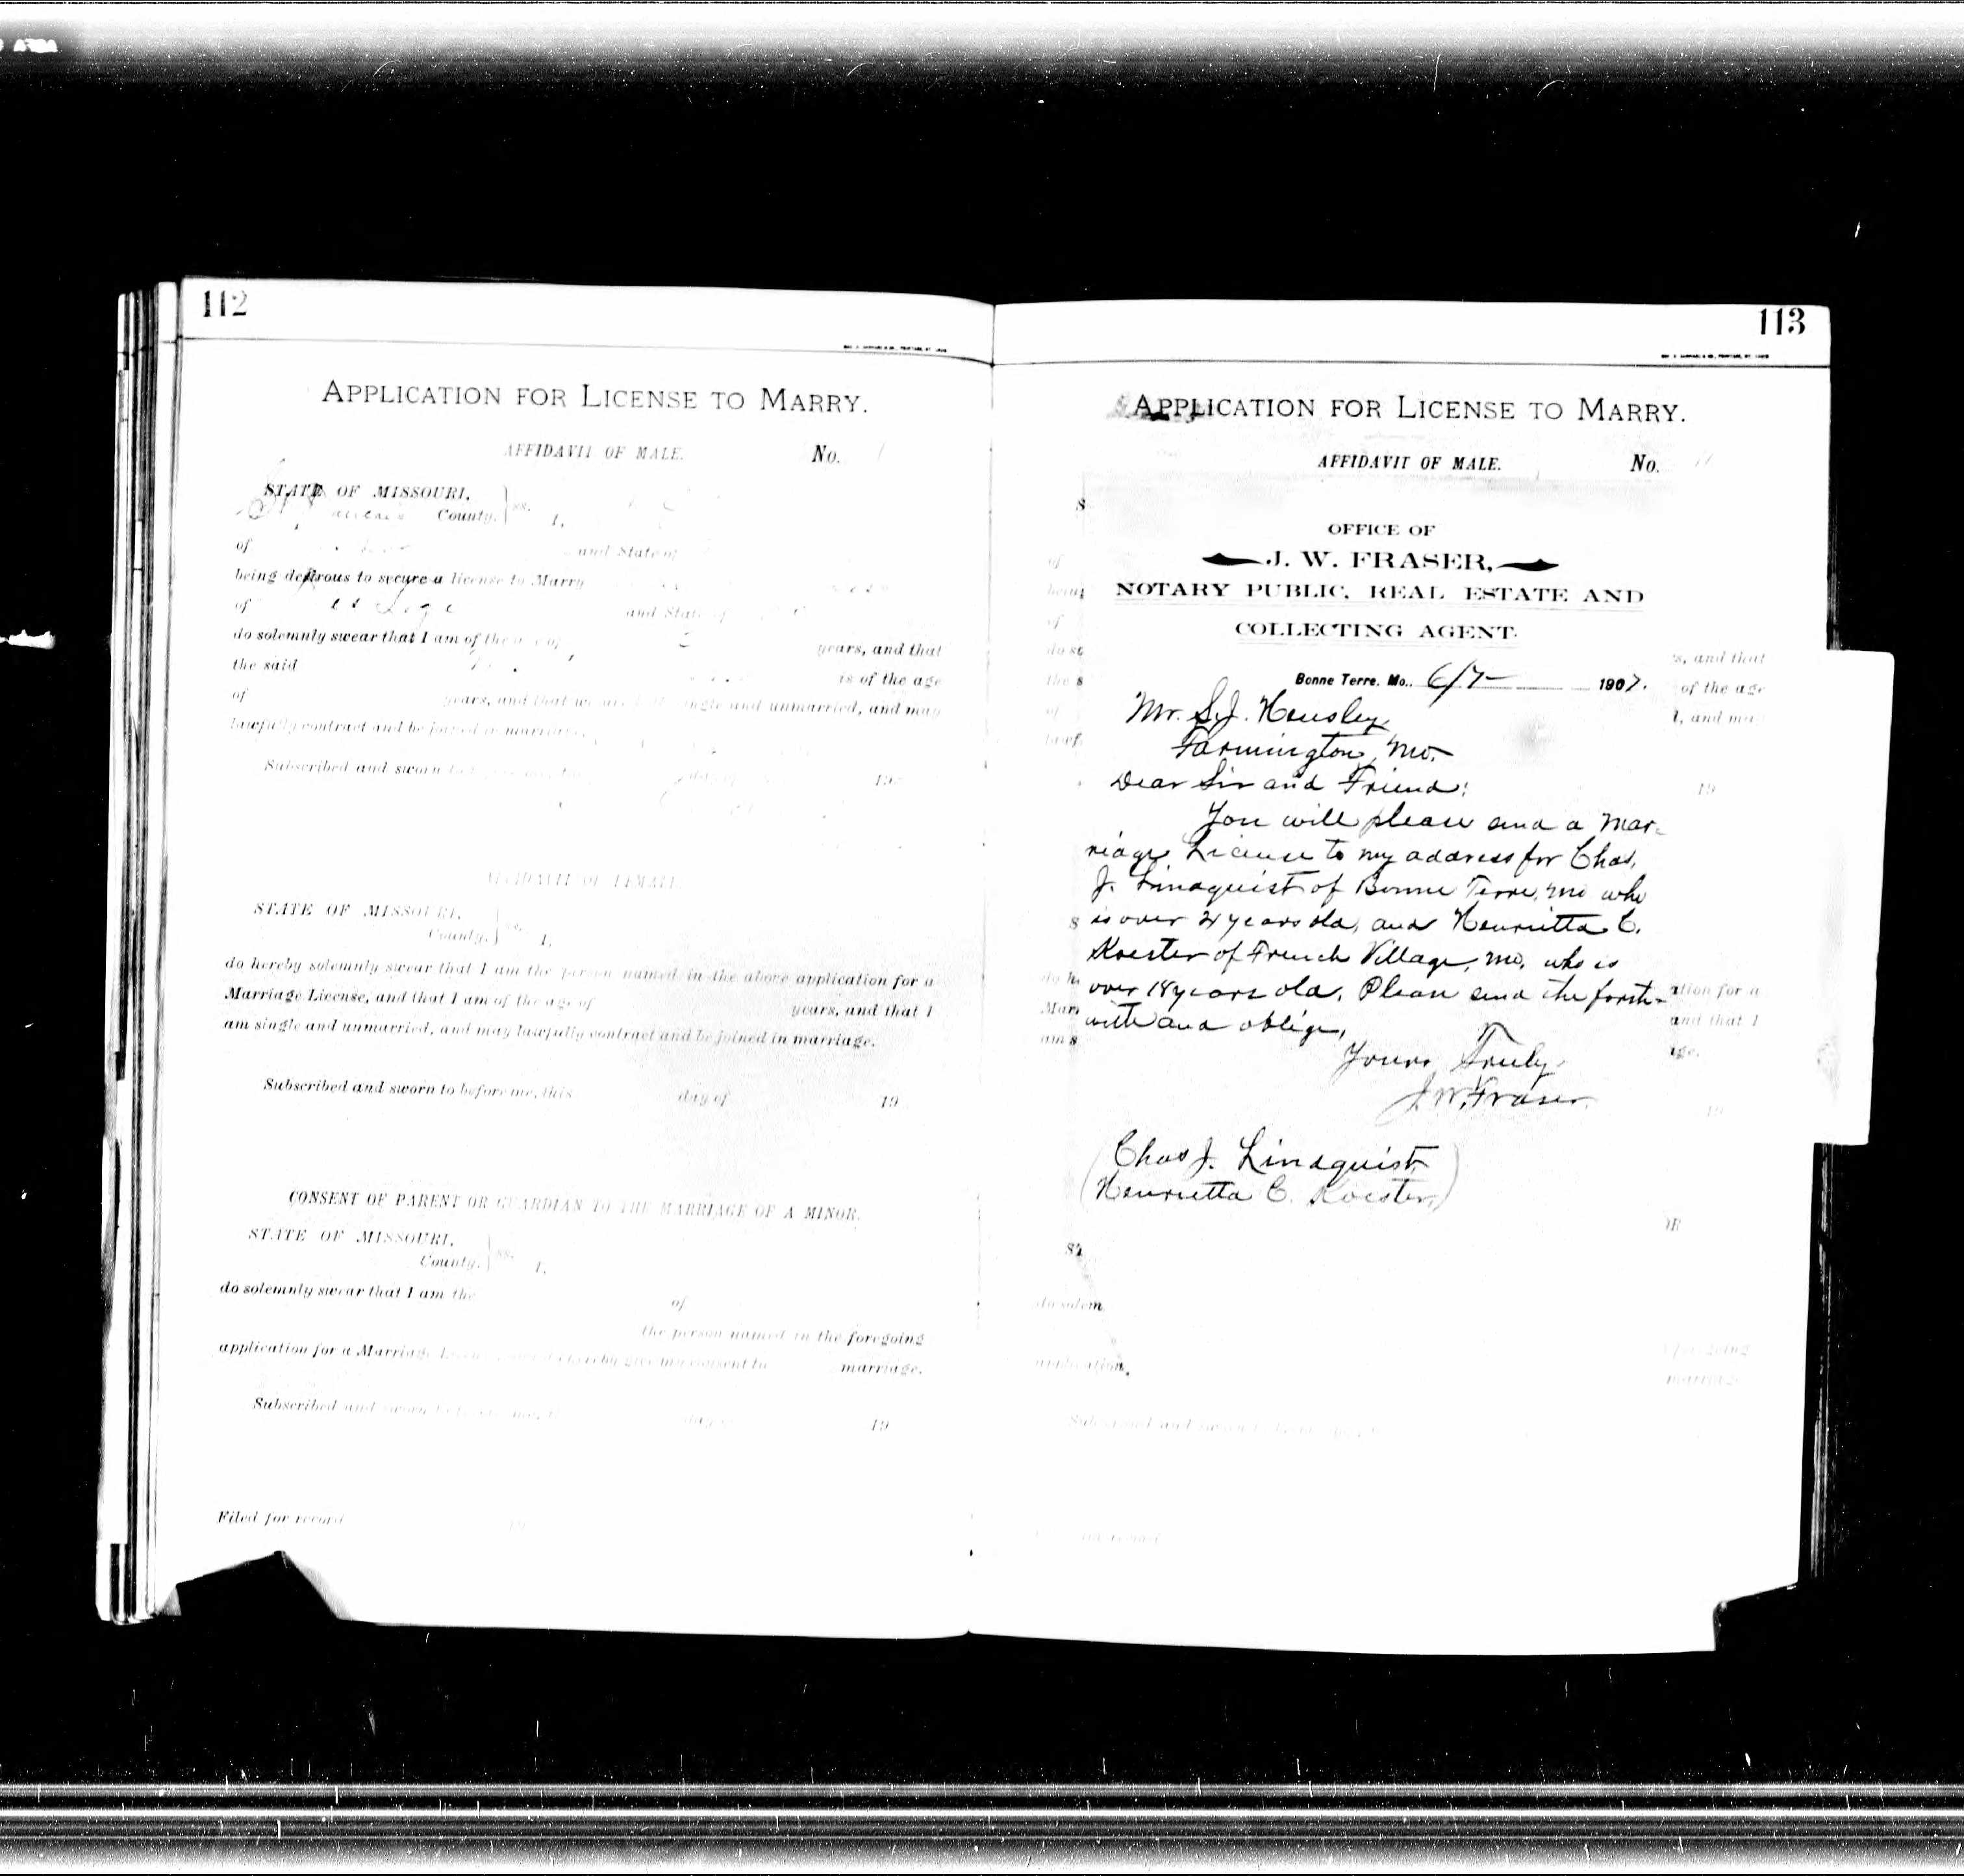 112
APPLICATION FOR LICENSE TO MARRY.
AFFIDAVIT OF MALE. No.
STATE OF MISSOURI,
County. ss. I,
of and State of
being desirous to secure a license to Marry
of and State of
do solemnly swear that I am of the age of years, and that
the said is of the age
of years, and that we are both single and unmarried, and may
lawfully contract and be joined in marriage.
Subscribed and sworn to before me, this day of 19
AFFIDAVIT OF FEMALE.
STATE OF MISSOURI,
County. ss. I,
do hereby solemnly swear that I am the person named in the above application for a
Marriage License, and that I am of the age of years, and that I
am single and unmarried, and may lawfully contract and be joined in marriage.
Subscribed and sworn to before me, this day of 19
CONSENT OF PARENT OR GUARDIAN TO THE MARRIAGE OF A MINOR.
STATE OF MISSOURI,
County. ss. I,
do solemnly swear that I am the of
the person named in the foregoing
application for a Marriage License, and I hereby give my consent to marriage.
Subscribed and sworn to before me, this day of 19
Filed for record 19
113
APPLICATION FOR LICENSE TO MARRY.
AFFIDAVIT OF MALE. No.
OFFICE OF
J. W. FRASER,
NOTARY PUBLIC, REAL ESTATE AND
COLLECTING AGENT.
Bonne Terre, Mo., 6/7 1907.
Mr. S. J. Hensley,
Farmington, Mo.
Dear Sir and Friend:
You will please send a Mar-
riage License to my address for Chas.
J. Lindquist of Bonne Terre, Mo who
is over 21 years old, and Henrietta C.
Koester of French Village, Mo. who is
over 18 years old. Please send the forth-
with and oblige,
Yours Truly
J. W. Fraser.
(Chas J. Lindquist
Henrietta C. Koester)
s, and that
of the age
19
ation for a
and that I
age.
19
do solem
application
Subscribed and sworn to before me, this